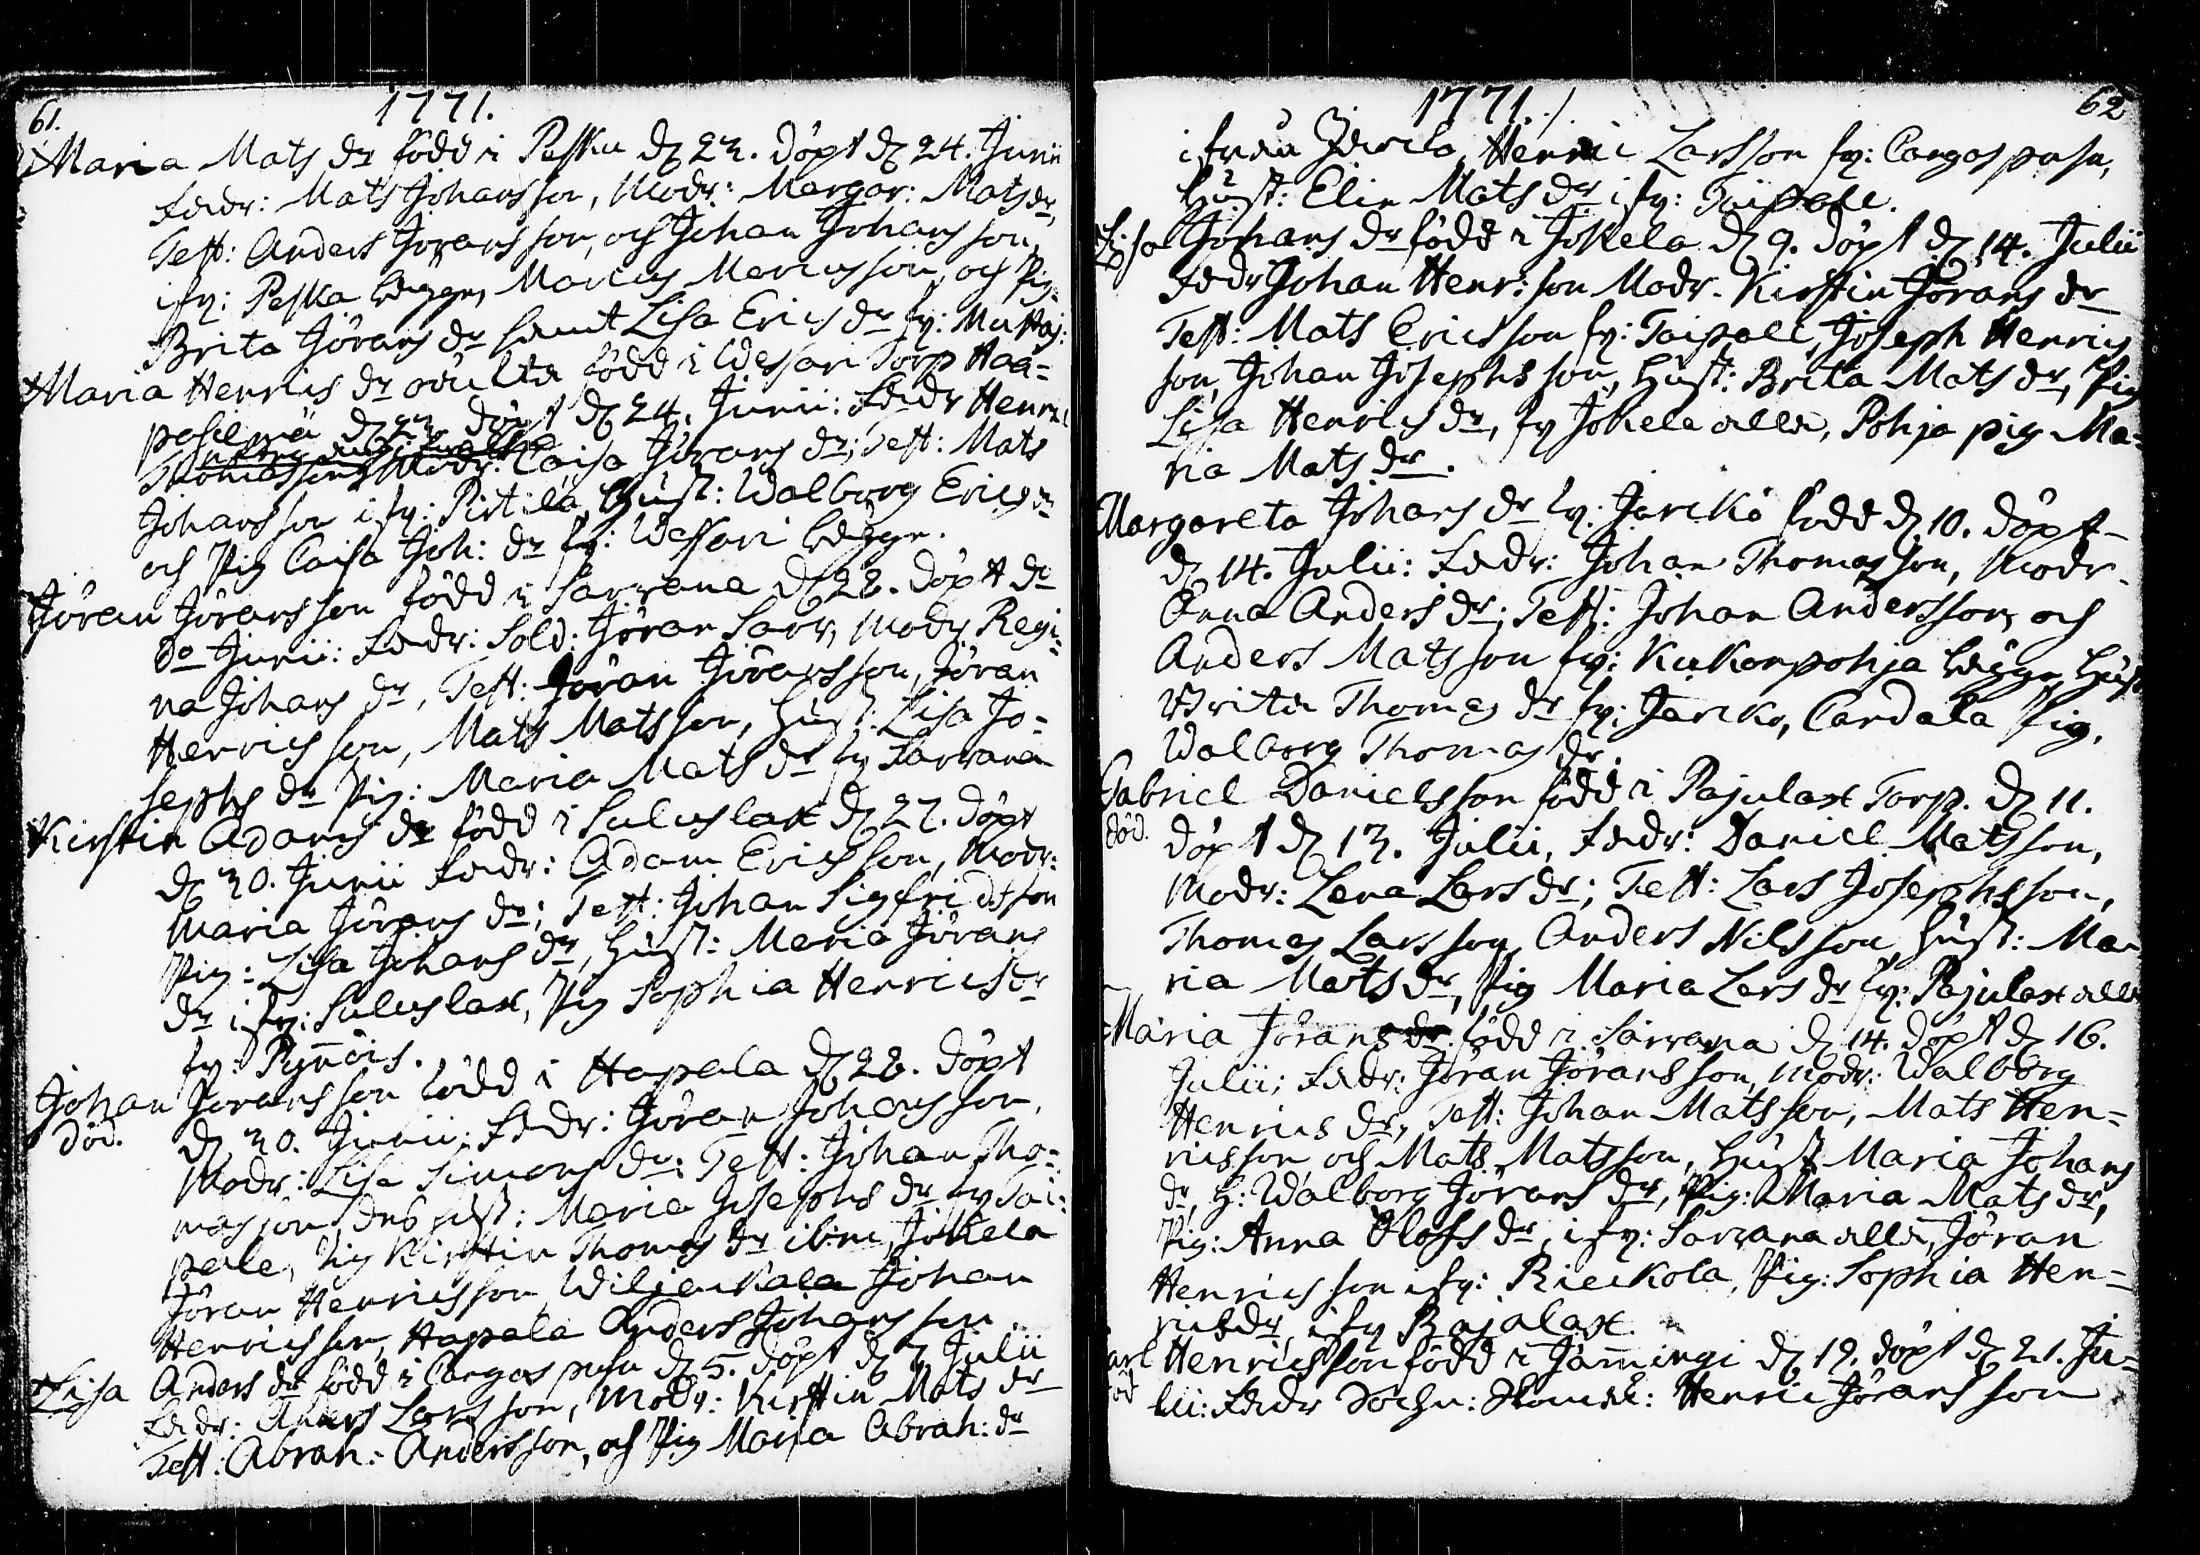 61.
1771.
Maria Mats dr född i Peska d 23. döpt d 24. Junii
Fadr: Mats Johansson, Modr: Margar: Mats dr
Test: Anders Jöransson, och Johan Johansson,
i by: Peska bägge, Marcus Marcusson, och Pig:
Brita Jörans dr samt Lisa Erics dr by:
Maria Henrics dr född i Wessari Torp Haa=
d 23. döpt d 24. Junii: Fadr Henric
Thomasson Modr: Caisa Jörans dr; Test: Mats
Johansson i by: Pirtilä, Hust: Walborg Erics dr
och Pig Caisa Joh: dr by: Wessari bägge.
Jöran Jöransson född i Sarvana d 28. döpt do
do Junii: Fadr: Sold: Jöran Sarv, Modr Regi=
na Johans dr, Test: Jöran Jöransson, Jöran
Henricsson, Mats Matsson, Hust: Lisa Jo=
sephs dr Pig: Maria Mats dr by Sarvana
Kirstin Adams dr född i Suluslax d 27. döpt
d 30. Junii Fadr: Adam Ericsson, Modr:
Maria Jörans dr; Test: Johan Sigfridsson
Pig: Lisa Johans dr, Hust: Maria Jörans
dr i by: Suluslax, Pig Sophia Henrics dr
by: Pynnöis.
Johan Jöransson född i Hapala d 28. döpt
död.
d 30. Junii; Fadr: Jöran Johansson,
Modr: Lisa Simons dr; Test: Johan Tho=
masson dess hust: Maria Josephs dr by Tai=
pale, Pig Kirstin Thomas dr ibm, Jokela
Jöran Henricsson, Wiljackala Johan
Henricsson, Hapala Anders Johansson
Lisa Anders dr född i Cangas d 5. döpt d 7 Julii
Fadr: Anders Larsson, Modr: Kirstin Mats dr
Test: Abrah: Andersson, och Pig Maria Abrah: dr
62
1771.
ifrån Henric Larsson by: Cangas
Hust: Elin Mats dr i by: Taipale.
Lisa Johans dr född i Jokela d 9. döpt d 14. Julii
Fadr Johan Henr: son Modr. Kirstin Jörans dr
Test: Mats Ericsson by: Taipale, Joseph Henrics
son, Johan Josephsson, Hust: Brita Mats dr, Pig
Lisa Henrics dr, by Jokela alla, Pohja pig Ma=
ria Mats dr.
Margareta Johans dr by: Jarcko född d 10. döpt
d 14. Julii: Fadr: Johan Thomasson, Modr.
Anna Anders dr; Test: Johan Andersson, och
Anders Matsson by: Kukonpohja bägge, Hust
Brita Thomas dr by: Jarcko, Cardala Pig.
Walborg Thomas dr.
Gabriel Danielsson född i Pajulax Torp. d 11.
död.
döpt d 13. Julii, Fadr: Daniel Matsson,
Modr: Lena Lars dr; Test: Lars Josephsson,
Thomas Larsson, Anders Nilsson Hust: Ma
ria Mats dr, Pig Maria Lars dr by: Pajulax alla
Maria Jörans dr född i Sarvana d 14. döpt d 16.
Julii; Fadr: Jöran Jöransson, Modr: Walborg
Henrics dr, Test: Johan Matsson, Mats Hen=
ricsson och Mats Matsson, Hust Maria Johans
dr, H: Walborg Jörans dr, Pig: Maria Mats dr,
Pig: Anna Olofs dr, i by: Sarvana alla, Jöran
Henricsson i by: Rieckola, Pig: Sophia Hen=
rics dr, i by Pajulax.
Carl Henricsson född i Jamingi d 19. döpt d 21. Ju=
död
lii: Fadr Sochn: Henric Jöransson